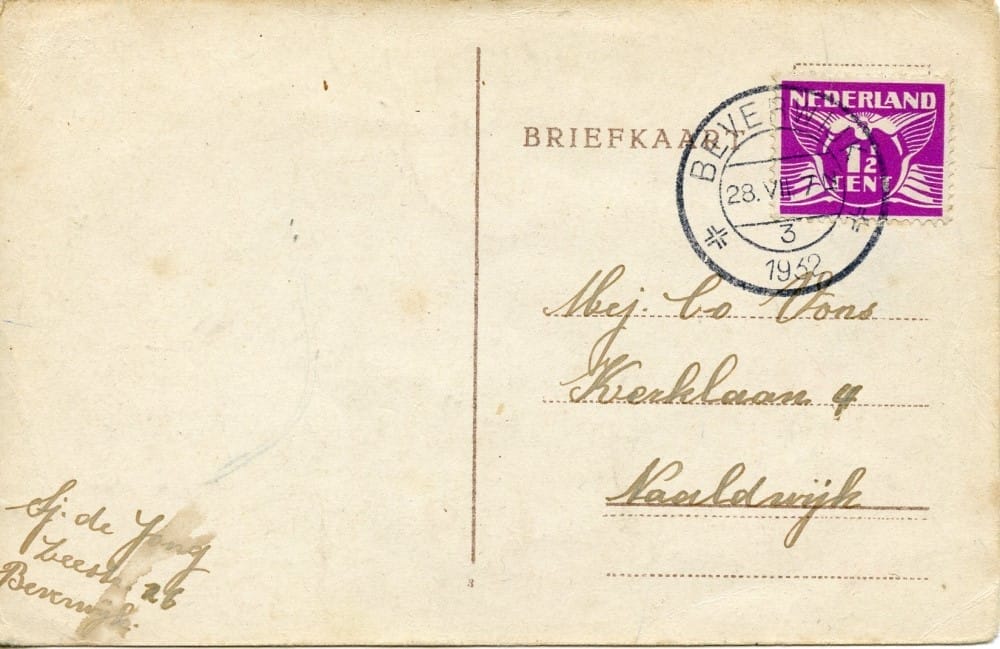 BRIEFKAART
NEDERLAND
1½
CENT
BEVERWIJK
28.VII.7
3
1932
Mej. Co Vons
Kerklaan 4
Naaldwijk
Sj. de Jong
Zeestr. 26
Beverwijk.